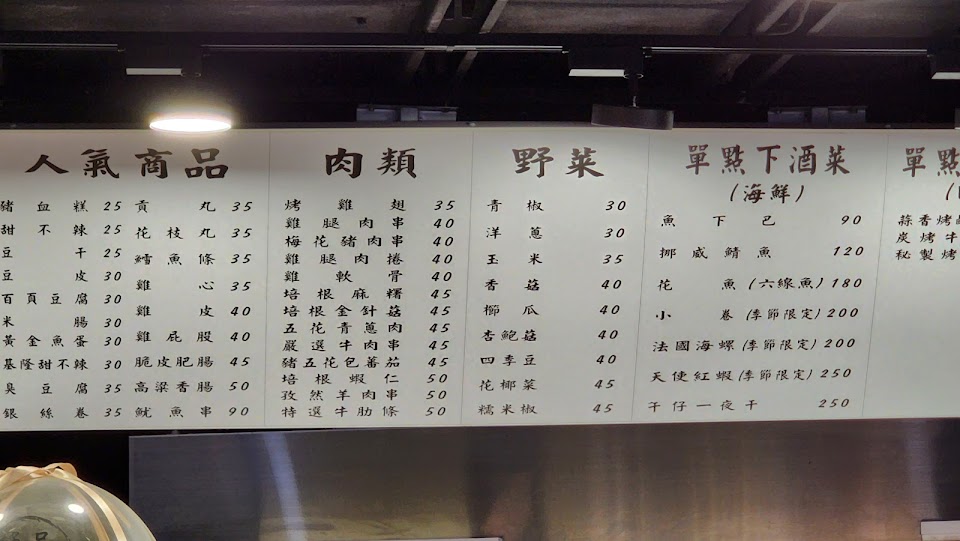 人氣商品
豬血糕 25
甜不辣 25
豆干 25
豆皮 30
百頁豆腐 30
米腸 30
黃金魚蛋 30
基隆甜不辣 30
臭豆腐 35
銀絲卷 35
貢丸 35
花枝丸 35
鱈魚條 35
雞心 35
雞皮 40
雞屁股 40
脆皮肥腸 45
高粱香腸 50
魷魚串 90
肉類
烤雞翅 35
雞腿肉串 40
梅花豬肉串 40
雞腿肉捲 40
雞軟骨 40
培根麻糬 45
培根金針菇 45
五花青蔥肉 45
嚴選牛肉串 45
豬五花包蕃茄 45
培根蝦仁 50
孜然羊肉串 50
特選牛肋條 50
野菜
青椒 30
洋蔥 30
玉米 35
香菇 40
櫛瓜 40
杏鮑菇 40
四季豆 40
花椰菜 45
糯米椒 45
單點下酒菜
(海鮮)
魚下巴 90
挪威鯖魚 120
花魚(六線魚) 180
小卷(季節限定) 200
法國海螺(季節限定) 200
天使紅蝦(季節限定) 250
午仔一夜干 250
單點
蒜香烤
炭烤牛
秘製烤